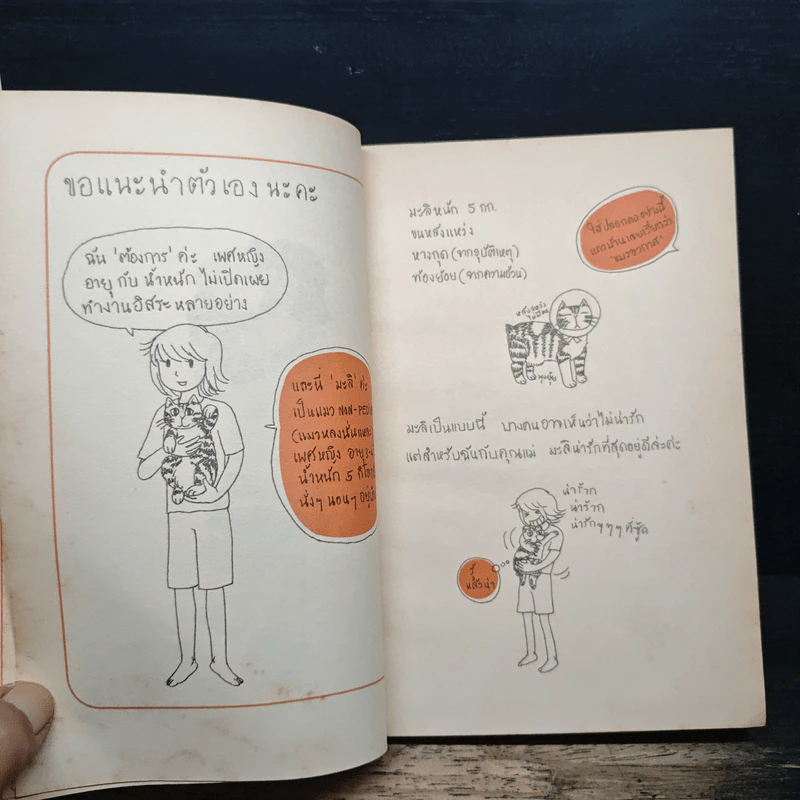 ขอแนะนำตัวเอง นะคะ
ฉัน 'ต้องการ' ค่ะ เพศหญิง
อายุ กับ น้ำหนัก ไม่เปิดเผย
ทำงานอิสระ หลายอย่าง
และนี่ 'มะลิ' ค่ะ
เป็นแมว NON-PED
(แมวหลงนั่นแหละ
เพศหญิง อายุ
น้ำหนัก 5
นั่งๆ นอนๆ อยู่
มะลิหนัก 5 กก.
ขนหลังแหว่ง
หางกุด (จากอุบัติเหตุ)
ท้องย้อย (จากความอ้วน)
ใส่ปลอกคออย่างนี้
แถวบ้านเลยเรียกว่า
'แมวอวกาศ'
หลังแหว่ง
ไม่มีขน
มะลิเป็นแบบนี้ บางคนอาจเห็นว่าไม่น่ารัก
แต่สำหรับฉันกับคุณแม่ มะลิน่ารักที่สุดอยู่ดีล่ะค่ะ
น่าร้าก
น่าร้าก
น่ารักๆๆๆ ที่ซู้ด
รู้
แล้วน่า